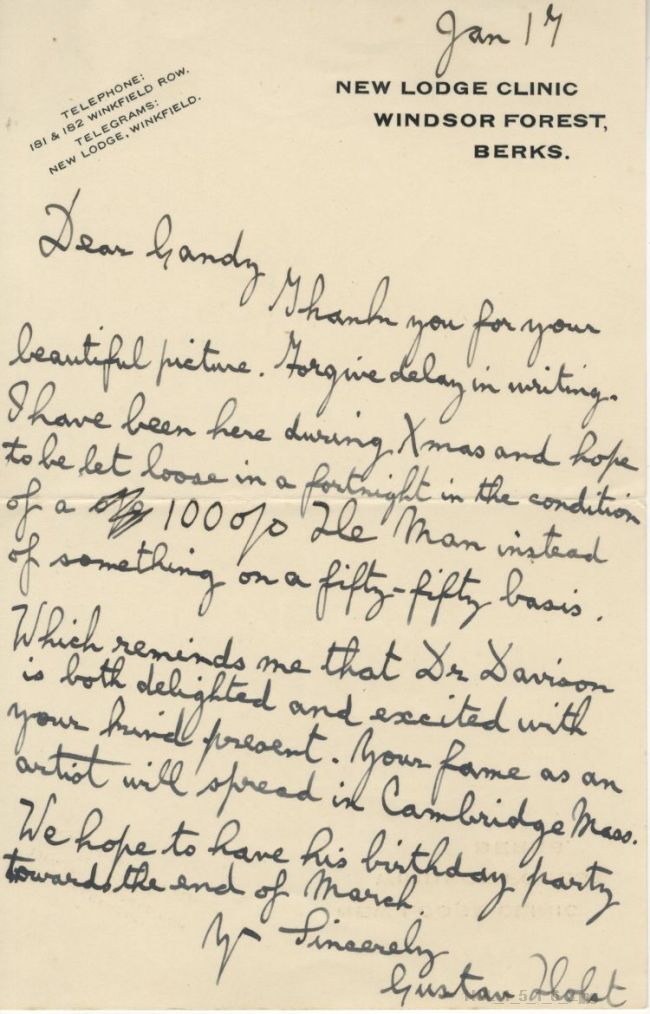 Jan 17
TELEPHONE:
181 & 182 WINKFIELD ROW.
TELEGRAMS:
NEW LODGE, WINKFIELD.
NEW LODGE CLINIC
WINDSOR FOREST,
BERKS.
Dear Gandy
Thank you for your
beautiful picture. Forgive delay in writing.
I have been here during Xmas and hope
to be let loose in a fortnight in the condition
of a 100 o/o He Man instead
of something on a fifty-fifty basis.
Which reminds me that Dr Davison
is both delighted and excited with
your kind present. Your fame as an
artist will spread in Cambridge Mass.
We hope to have his birthday party
towards the end of March.
Yr Sincerely
Gustav Holst